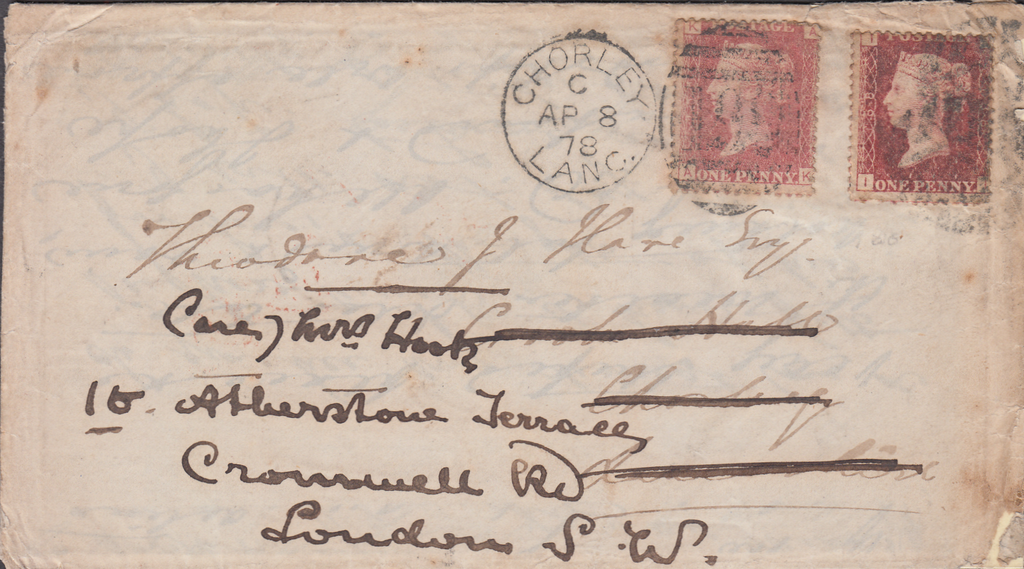 CHORLEY
C
AP 8
78
LANC.
K A
A ONE PENNY K
I
I ONE PENNY
Theodore J Hare Esq.
Care) Mrs Hook
Hall
15. Atherstone Terrace
Chorley
Cromwell Rd
London S.W.